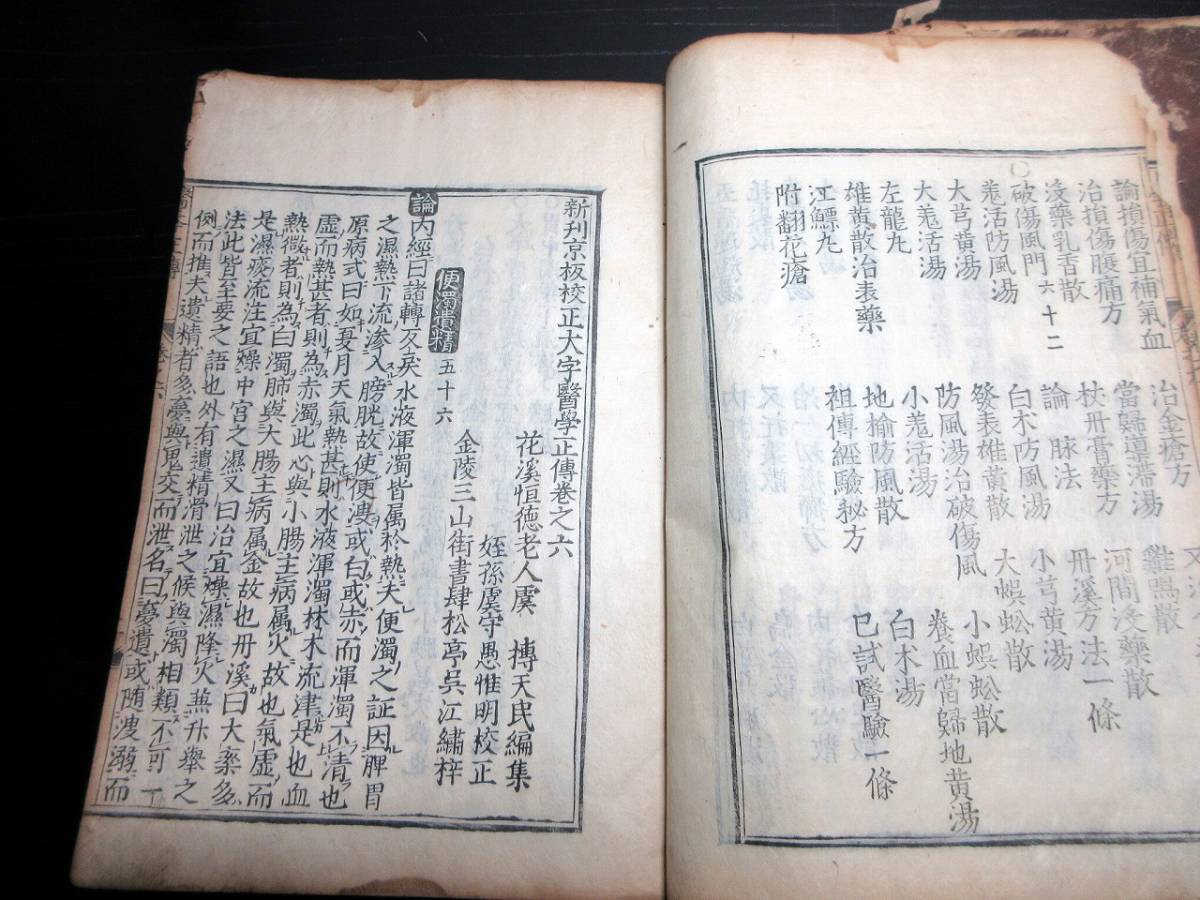 論損傷宜補氣血 治金瘡方
治損傷腹痛方 當歸導滯湯 雞鳴散
沒藥乳香散 杖丹膏藥方 河間沒藥散
○破傷風門六十二 論 脉法 丹溪方法一條
羗活防風湯 白朮防風湯 小芎黃湯
大芎黃湯 發表雄黃散 大蜈蚣散
大羗活湯 防風湯治破傷風 小蜈蚣散
左龍丸 小羗活湯 養血當歸地黃湯
雄黃散治表藥 地榆防風散 白朮湯
江鰾丸 祖傳經驗秘方 已試醫驗一條
附翻花瘡
新刊京板校正大字醫學正傳卷之六
花溪恒德老人虞 摶天民編集
姪孫虞守愚惟明校正
金陵三山街書肆松亭吳江繡梓
便濁遺精 五十六
論 內經曰諸轉反戾水液渾濁皆属於熱夫便濁之証因脾胃
之濕熱下流滲入膀胱故使便溲或白或赤而渾濁不清也
原病式曰如夏月天氣熱甚則水液渾濁林木流津是也血
虛而熱甚者則為赤濁此心與小腸主病属火故也氣虛而
熱微者則為白濁肺與大腸主病属金故也丹溪曰大率多
是濕痰流注宜燥中宮之濕又曰治宜燥濕降火兼升舉之
法此皆至要之語也外有遺精滑泄之候與濁相類不可一
例而推夫遺精者多夢與鬼交而泄名曰夢遺或随溲溺而